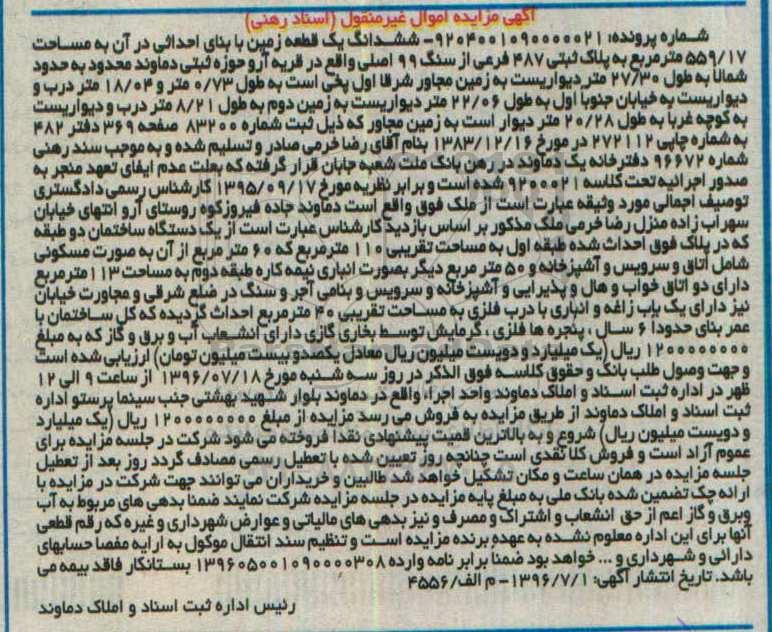 آگهی مزایده اموال غیرمنقول (اسناد رهنی)
شـماره پرونده: ۹۲۰۴۰۰۱۰۹۰۰۰۰۰۲۱- ششدانگ یک قطعه زمین با بنای احداثی در آن به مسـاحت
۵۵۹/۱۷ مترمربع به پلاک ثبتی ۴۸۷ فرعی از سنگ ۹۹ اصلی واقع در قریه آرو حوزه ثبتی دماوند محدود به حدود
شمالا به طول ۲۷/۳۰ متر دیواریست به زمین مجاور شرقا اول پخی است به طول ۰/۷۳ متر و ۱۸/۰۴ متر درب و
دیواریست به خیابان جنوبا اول به طول ۲۲/۰۶ متر دیواریست به زمین دوم به طول ۸/۲۱ متر درب و دیواریست
به کوچه غربا به طول ۲۰/۲۸ متر دیوار است به زمین مجاور که ذیل ثبت شماره ۸۳۲۰۰ صفحه ۳۶۹ دفتر ۴۸۲
به شماره چاپی ۲۷۲۱۱۲ در مورخ ۱۳۸۳/۱۲/۱۶ بنام آقای رضا خرمی صادر و تسلیم شده و به موجب سند رهنی
شماره ۹۶۶۷۲ دفترخانه یک دماوند در رهن بانک ملت شعبه جابان قرار گرفته که بعلت عدم ایفای تعهد منجر به
صدور اجرائیه تحت کلاسه ۹۲۰۰۰۲۱ شده است و برابر نظریه مورخ ۱۳۹۵/۰۹/۱۷ کارشناس رسمی دادگستری
توصیف اجمالی مورد وثیقه عبارت است از ملک فوق واقع است دماوند جاده فیروزکوه روستای آرو انتهای خیابان
سهراب زاده منزل رضا خرمی ملک مذکور بر اساس بازدید کارشناس عبارت است از یک دستگاه ساختمان دو طبقه
که در پلاک فوق احداث شده طبقه اول به مساحت تقریبی ۱۱۰ مترمربع که ۶۰ متر مربع از آن به صورت مسکونی
شامل اتاق و سرویس و آشپزخانه و ۵۰ متر مربع دیگر بصورت انباری نیمه کاره طبقه دوم به مساحت ۱۱۳ مترمربع
دارای دو اتاق خواب و هال و پذیرایی و آشپزخانه و سرویس و بنامی آجر و سنگ در ضلع شرقی و مجاورت خیابان
نیز دارای یک باب زاغه و انباری با درب فلزی به مساحت تقریبی ۴۰ مترمربع احداث گردیده که کل ساختمان با
عمر بنای حدودا ۶ سال ، پنجره ها فلزی ، گرمایش توسط بخاری گازی دارای انشـعاب آب و برق و گاز که به مبلغ
۱۲۰۰۰۰۰۰۰۰ ریال (یک میلیارد و دویست میلیون ریال معادل یکصدو بیست میلیون تومان) ارزیابی شده است
و جهت وصول طلب بانک و حقوق کلاسه فوق الذکر در روز سه شنبه مورخ ۱۳۹۶/۰۷/۱۸ از ساعت ۹ الی ۱۲
ظهر در اداره ثبت اسـناد و املاک دماوند واحد اجرا، واقع در دماوند بلوار شـهید بهشتی جنب سینما پرستو اداره
ثبت اسناد و املاک دماوند از طریق مزایده به فروش می رسد مزایده از مبلغ ۱۲۰۰۰۰۰۰۰۰ ریال (یک میلیارد
و دویست میلیون ریال) شروع و به بالاترین قمیت پیشنهادی نقدا فروخته می شود شرکت در جلسه مزایده برای
عموم آزاد است و فروش کلا نقدی است چنانچه روز تعیین شده با تعطیل رسمی مصادف گردد روز بعد از تعطیل
جلسه مزایده در همان ساعت و مکان تشکیل خواهد شد طالبین و خریداران می توانند جهت شرکت در مزایده با
ارائه چک تضمین شده بانک ملی به مبلغ پایه مزایده در جلسه مزایده شرکت نمایند ضمنا بدهی های مربوط به آب
وبرق و گاز اعم از حق انشعاب و اشتراک و مصرف و نیز بدهی های مالیاتی و عوارض شهرداری و غیره که رقم قطعی
آنها برای این اداره معلوم نشـده به عهده برنده مزایده است و تنظیم سند انتقال موکول به ارایه مفصا حسابهای
دارائی و شـهرداری و ... خواهد بود ضمنا برابر نامه وارده ۱۳۹۶۰۵۰۰۱۰۹۰۰۰۰۳۰۸ بستانکار فاقد بیمه می
باشد. تاریخ انتشار آگهی: ۱۳۹۶/۷/۱- م الف/۴۵۵۶
رئیس اداره ثبت اسناد و املاک دماوند